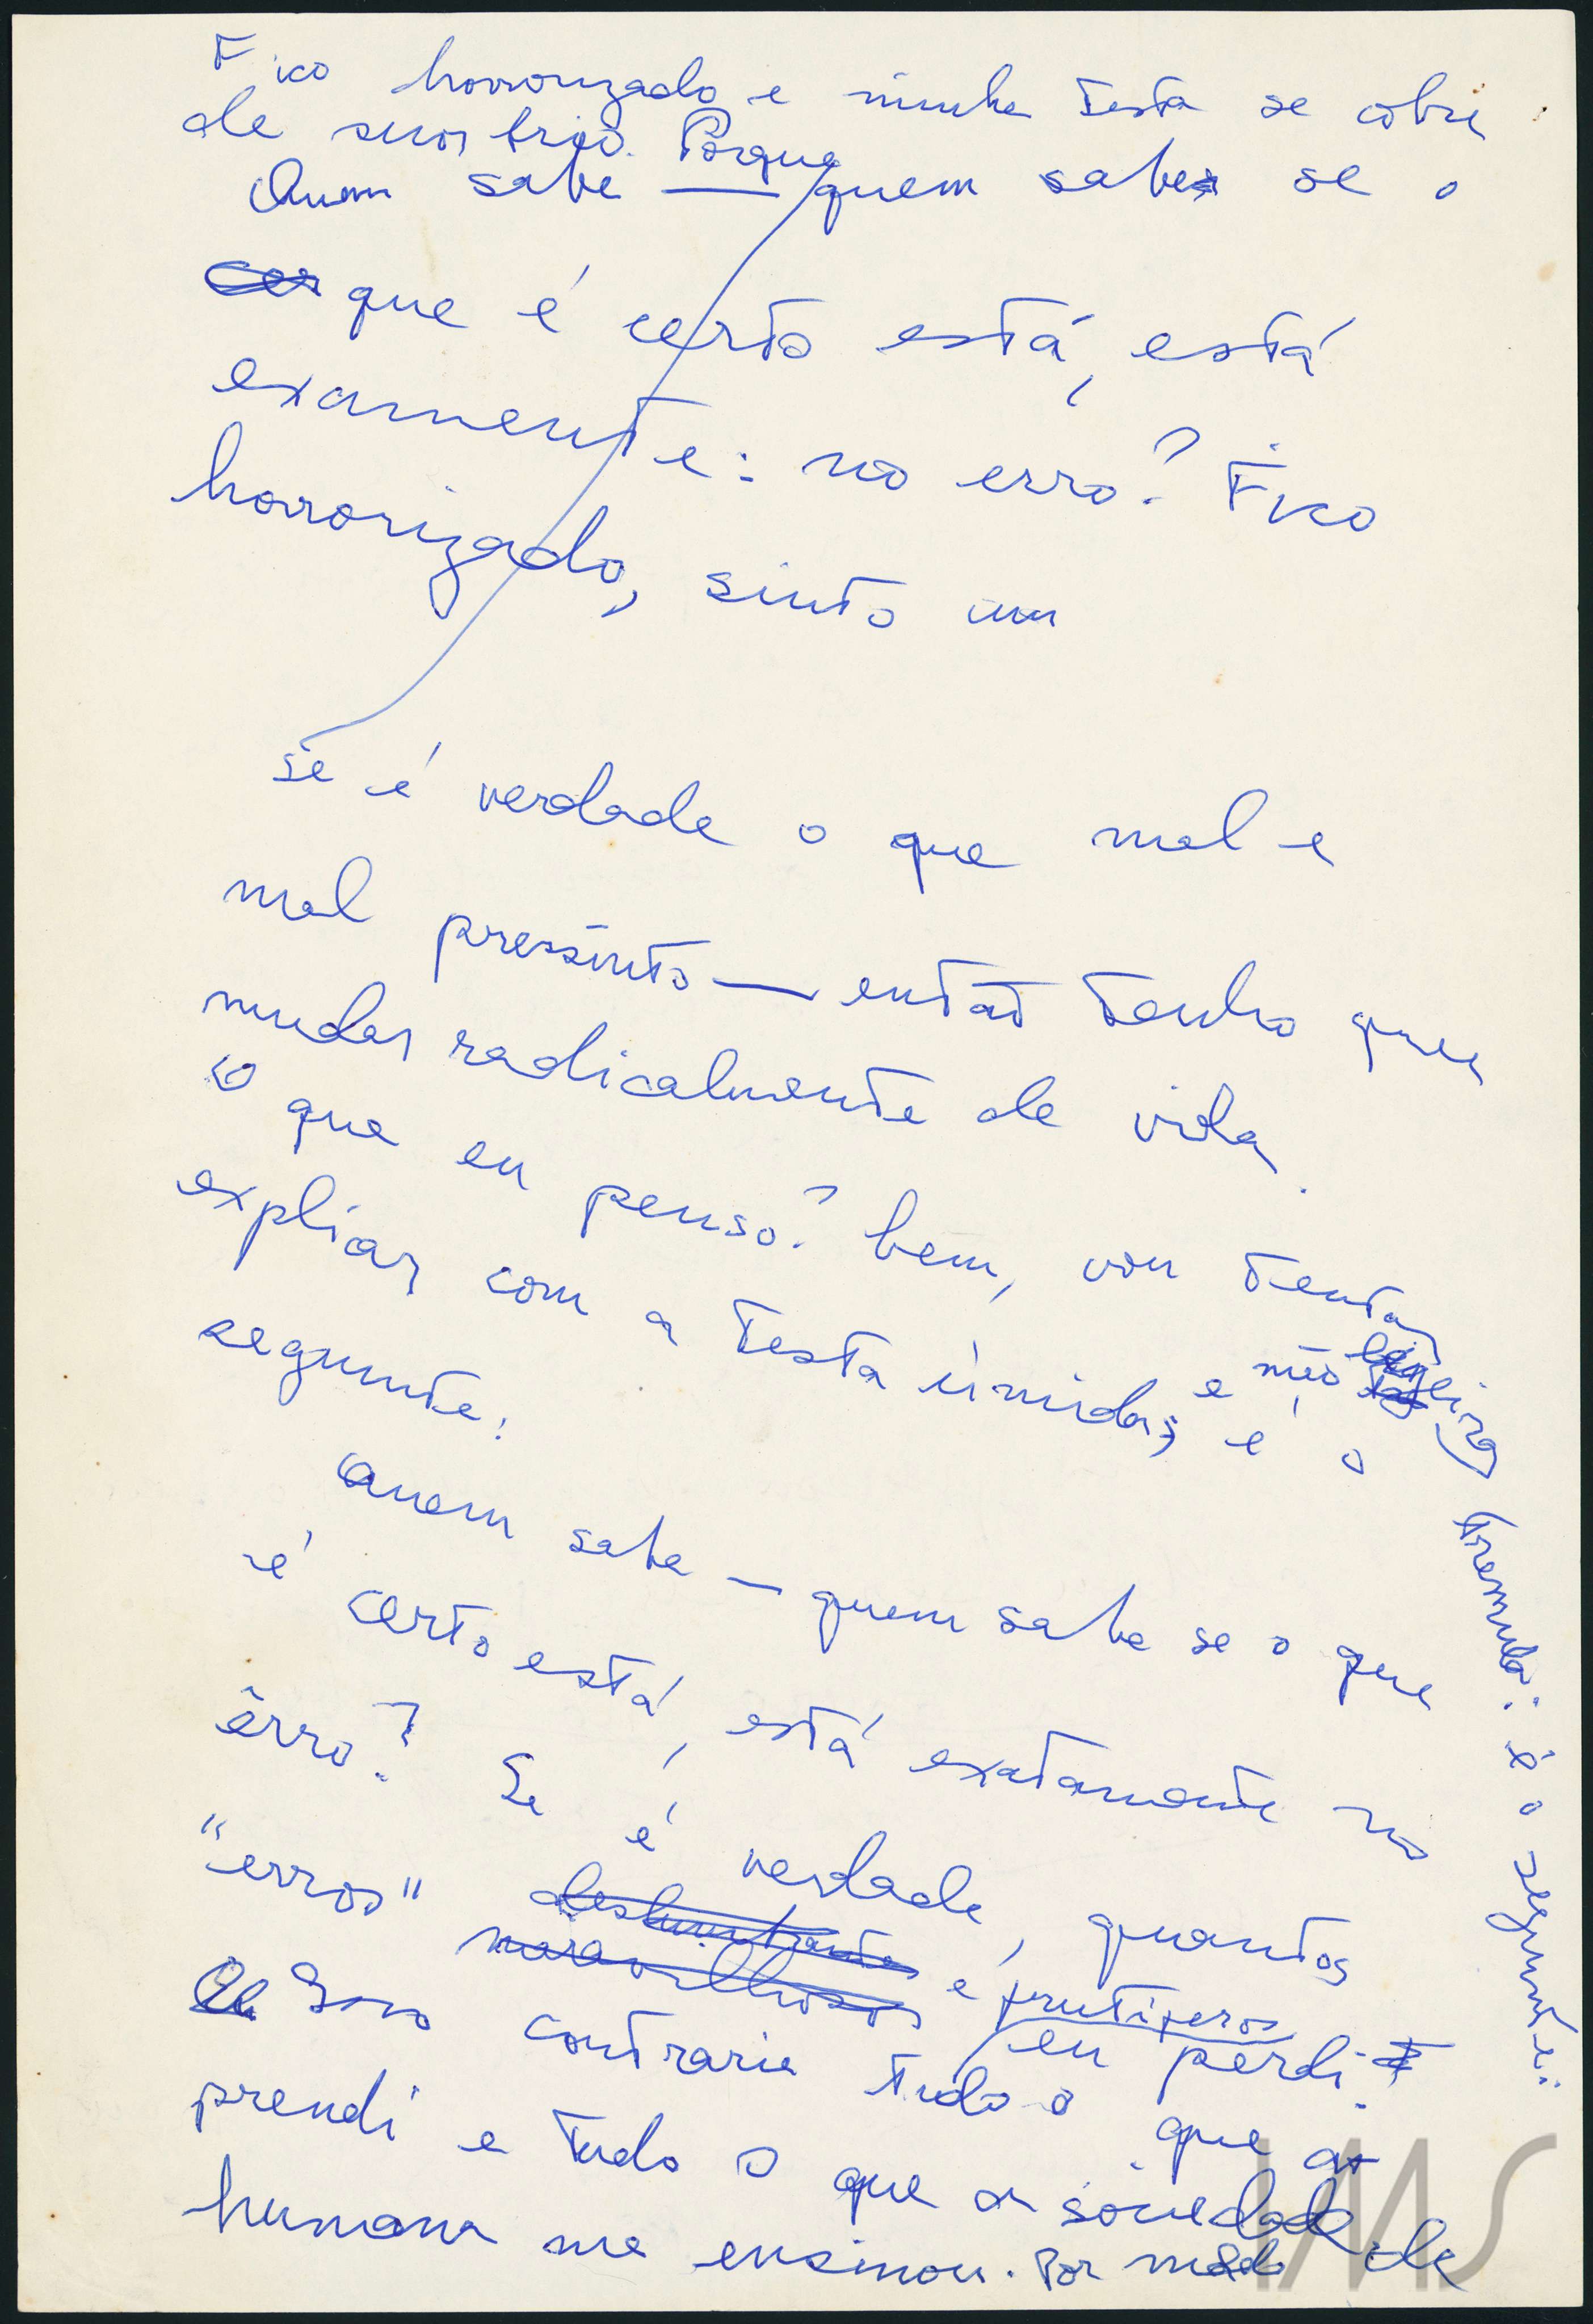 Fico horrorizado e minha testa se cobre
de suor frio. Porque
Quem sabe — quem sabe se o
que é certo está, está
examente: no erro? Fico
horrorizado, sinto um
se é verdade o que mal e
mal pressinto — então tenho que
mudar radicalmente de vida.
O que eu penso? bem, vou tentar
expliar com a testa úmida, e mão ligeira
é o
seguinte:
tremula: é o seguinte:
Quem sabe — quem sabe se o que
é certo está, está exatamente no
êrro? Se é verdade, quantos
"erros" deslumbrantes
maravilhosos e frutiferos eu perdi.
Isso contraria tudo o que a
prendi e tudo o que a sociedade
humana me ensinou. Por medo de
IMS